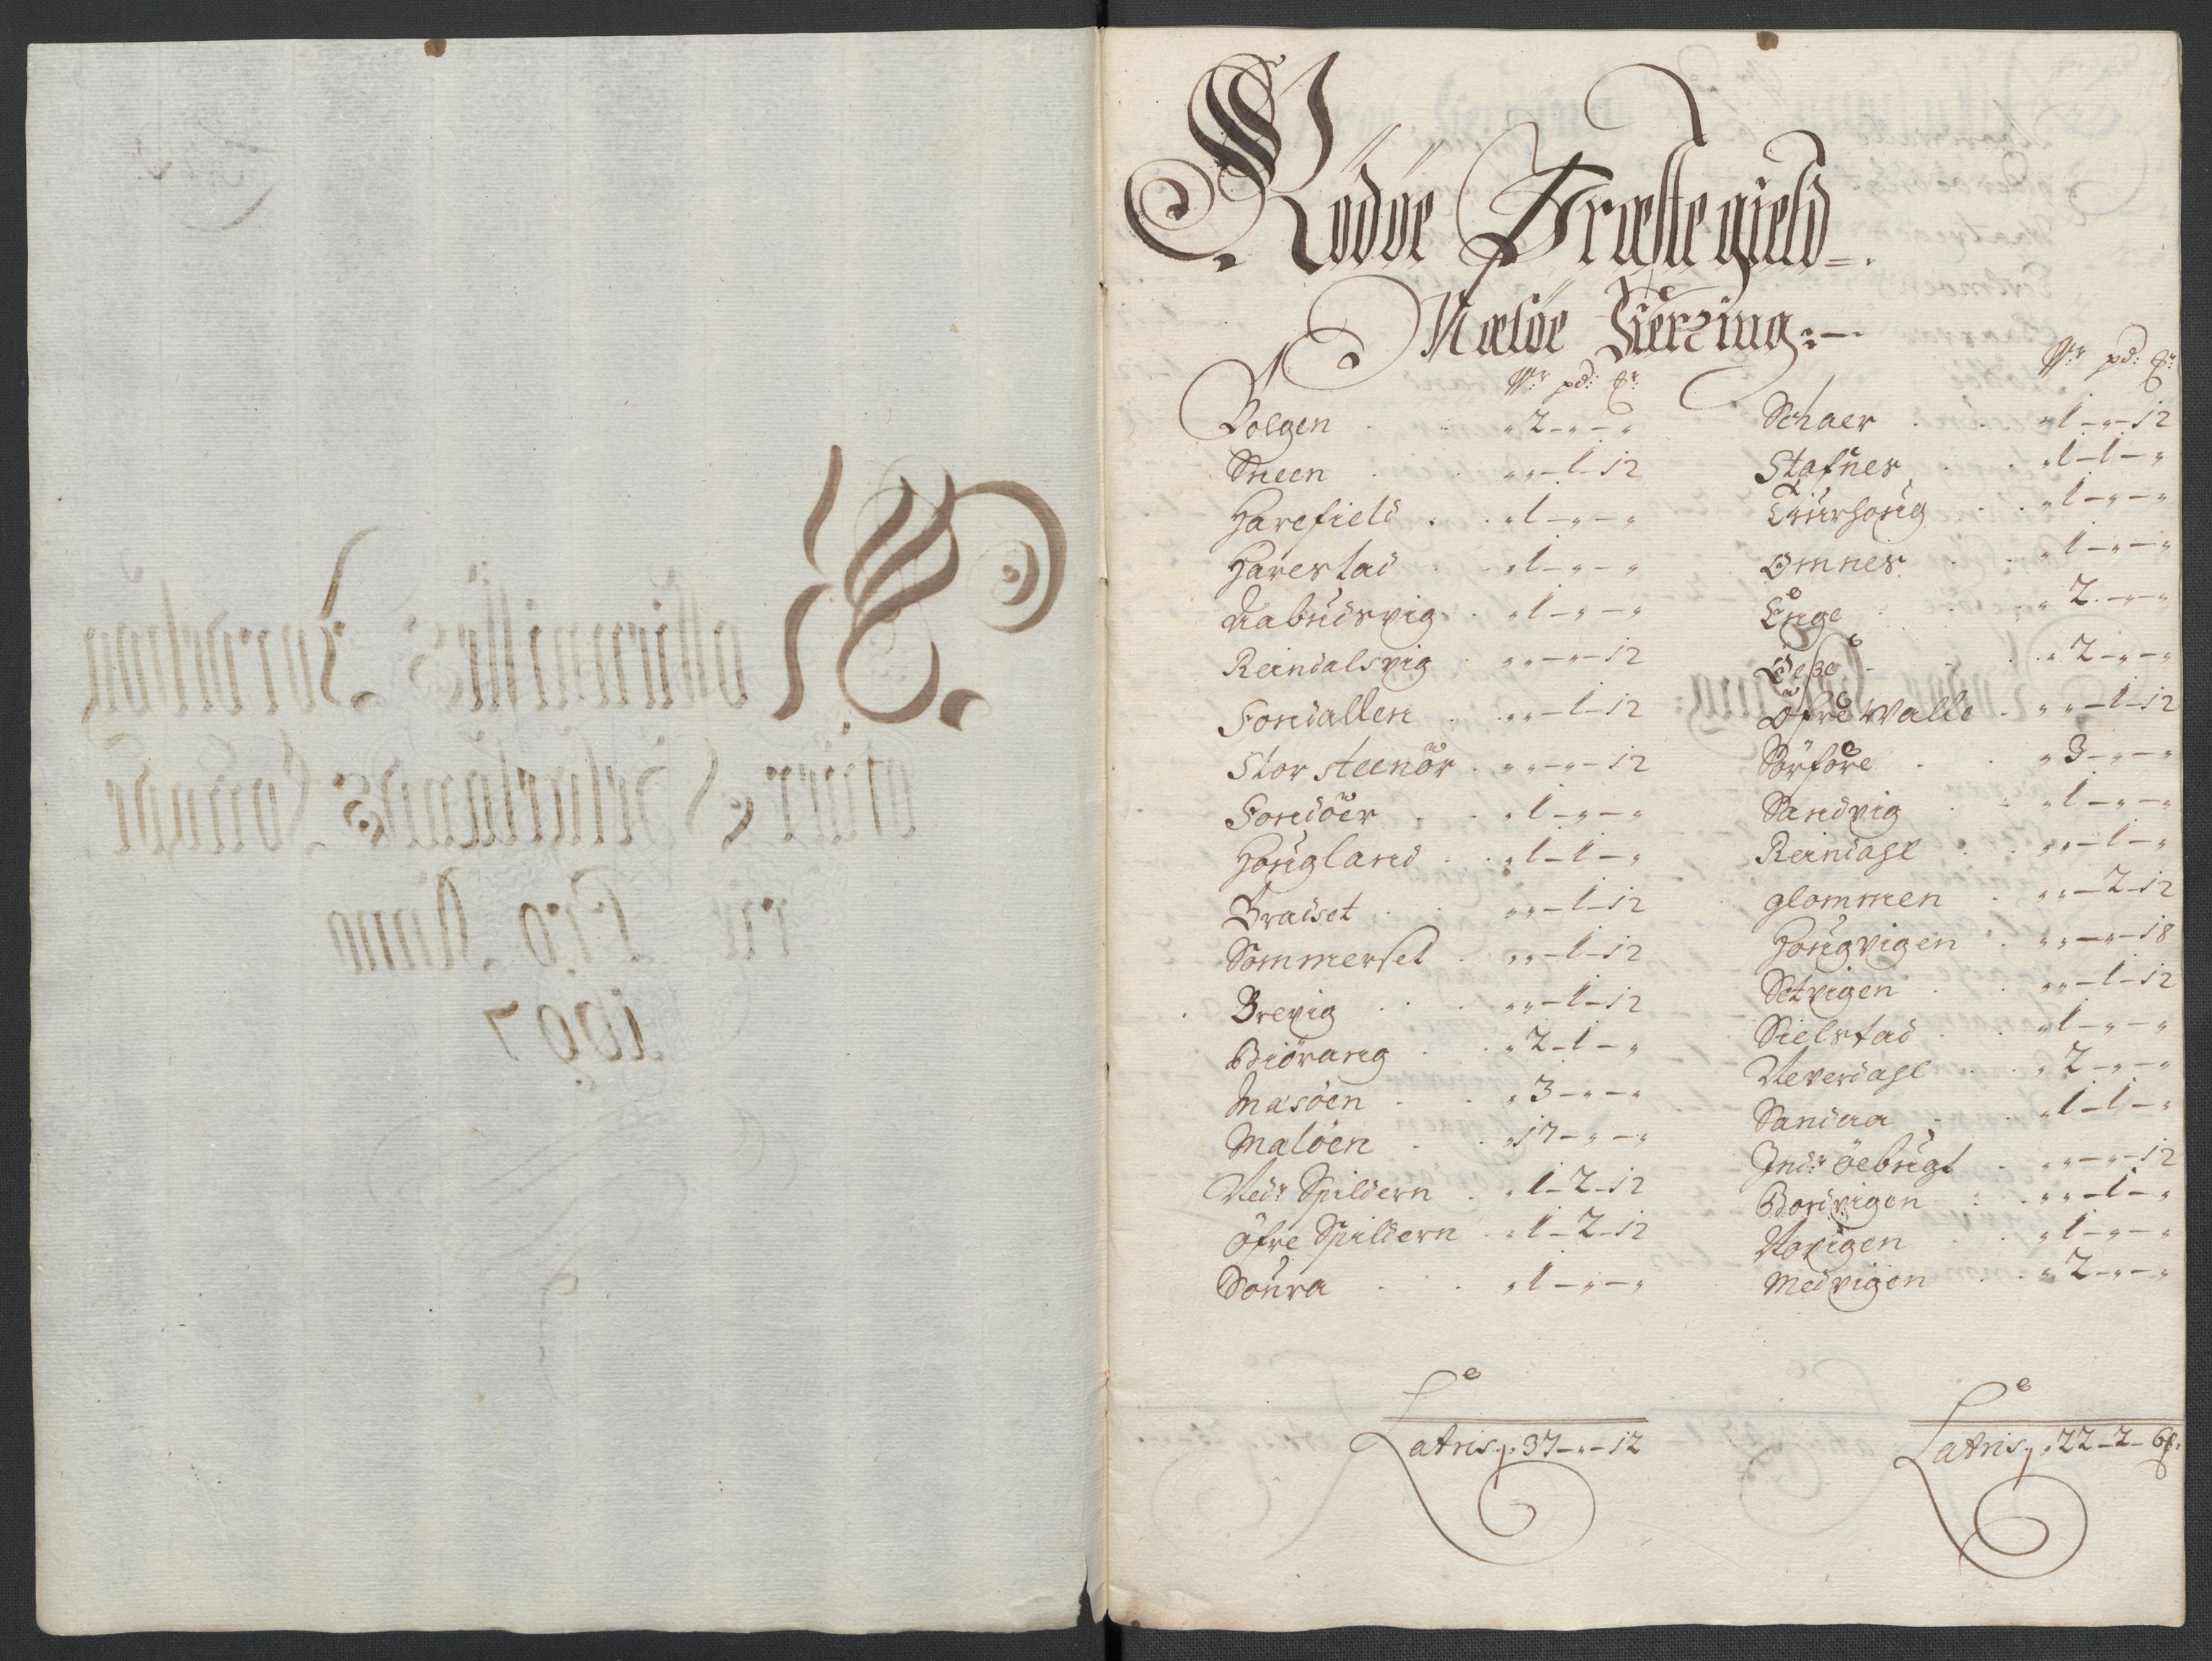 Rödöe Præstegield
Mæløe Fierding:
W:r pd: ℔:
Bolgen " 2 - " - "
Sneen " " - 1 - 12
Harefield " 1 - " - "
Harestad " 1 - " - "
Nabudsvig " 1 - " - "
Reindalsvig " " - " - 12
Fondallen " " - 1 - 12
Stor steenör " " - " - 12
Fondöer " 1 - " - "
Hougland " 1 - 1 - "
Bradset " " - 1 - 12
Sommerset " " - 1 - 12
Brevig " " - 1 - 12
Biörang " 2 - 1 - "
Mæsöen " 3 - " - "
Malöen " 17 - " - "
Ned:r Spildern " 1 - 2 - 12
Öfre Spildern " 1 - 2 - 12
Soura " 1 - " - "
Latris " 37 - " - 12
W:r pd: ℔:
Schaer " 1 - " - 12
Stafnes " 1 - 1 - "
Tiurhoug " 1 - " - "
Omnes " 1 - " - "
Enge " 2 - " - "
" 2 - " - "
Öfre Walle " " - 1 - 12
Sörfore " 3 - " - "
Sandvig " 1 - " - "
Reindahl " " - 1 - "
glommen " " - 2 - 12
Hougvigen " " - " - 18
Setvigen " " - 1 - 12
Sielstad " 1 - " - "
Neverdahl " 2 - " - "
Sandaa " 1 - 1 - "
Ind:r öebugt " " - " - 12
Bordvigen " " - 1 - "
Vorigen " 1 - " - "
Medvigen " 2 - " - "
Latris " 22 - 2 - 6